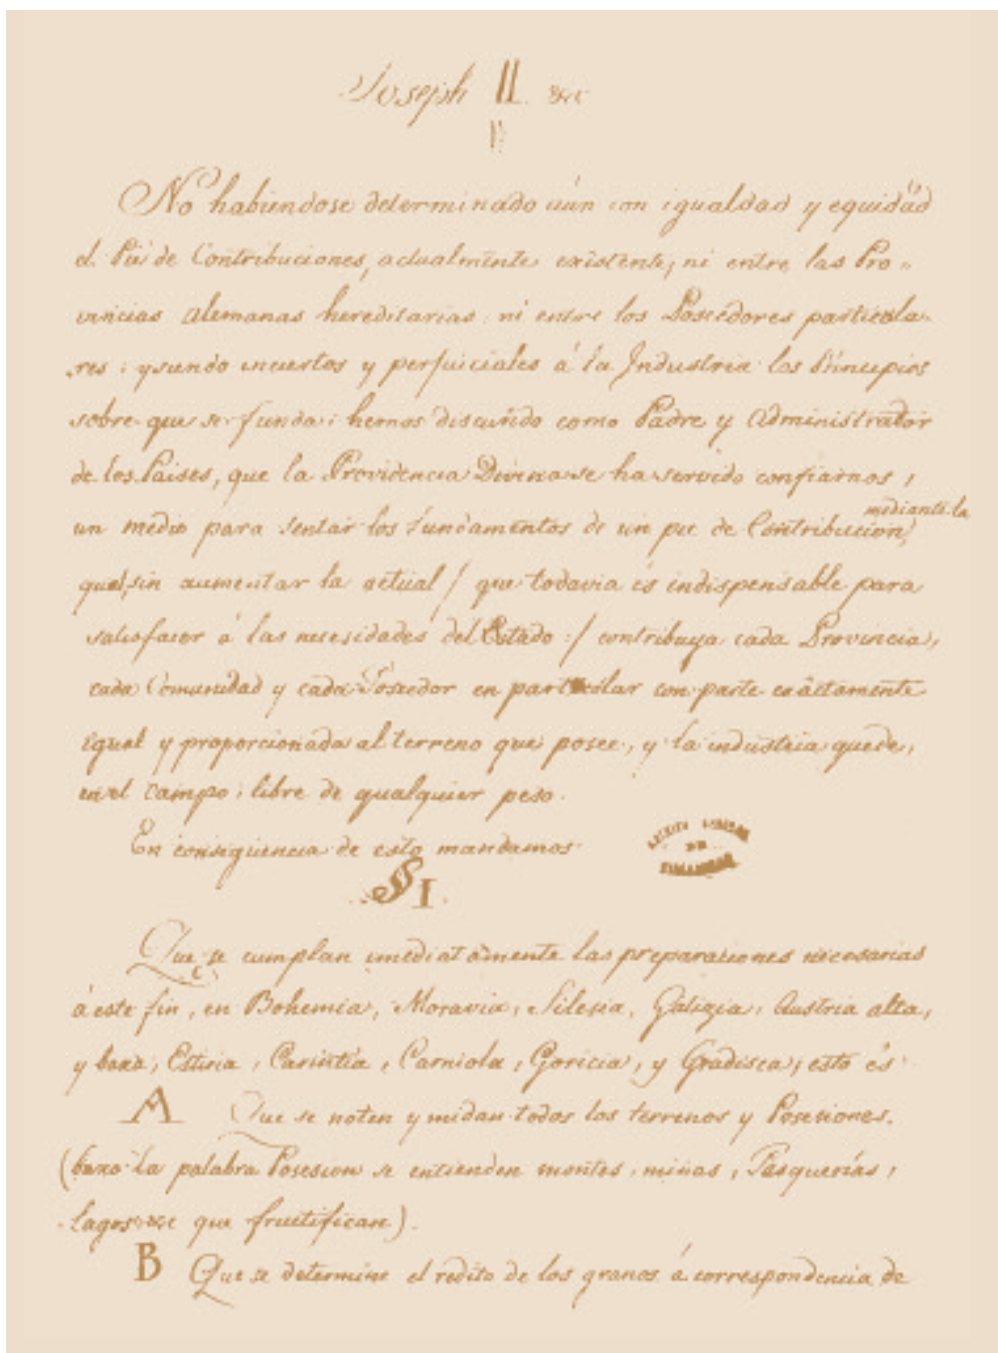 Joseph II. &c
No habiendose determinado aún con igualdad y equidad
el Pie de Contribuciones, actualmente existente, ni entre las Pro=
vincias Alemanas hereditarias ni entre los Poseédores particula=
res; y siendo inciertos y perjuiciales á la Industria los Principios
sobre que se funda; hemos discurrido como Padre y Administrador
de los Paises, que la Providencia Divina se ha servido confiarnos,
un medio para sentar los fundamentos de un pie de Contribucion, mediante la
qual, sin aumentar la actual /: que todavia és indispensable para
satisfacer á las necesidades del Estado :/ contribuya cada Provincia,
cada Comunidad y cada Poseedor en particular con parte exâctamente
igual y proporcionada al terreno que posee, y la industria quede,
en el campo, libre de qualquier peso.
En consiguencia de esto mandamos
§ I.
Que se cumplan imediatamente las preparaciones necesarias
á este fin, en Bohemia, Moravia, Silesia, Galizia, Austria alta,
y baxa, Estiria, Carintia, Carniola, Goricia, y Gradisca; esto és
A Que se noten y midan todos los terrenos y Posesiones.
(baxo la palabra Posesion se entienden montes, minas, Pasquerías,
lagos &c que fructifican).
B Que se determine el redito de los granos á correspondencia de